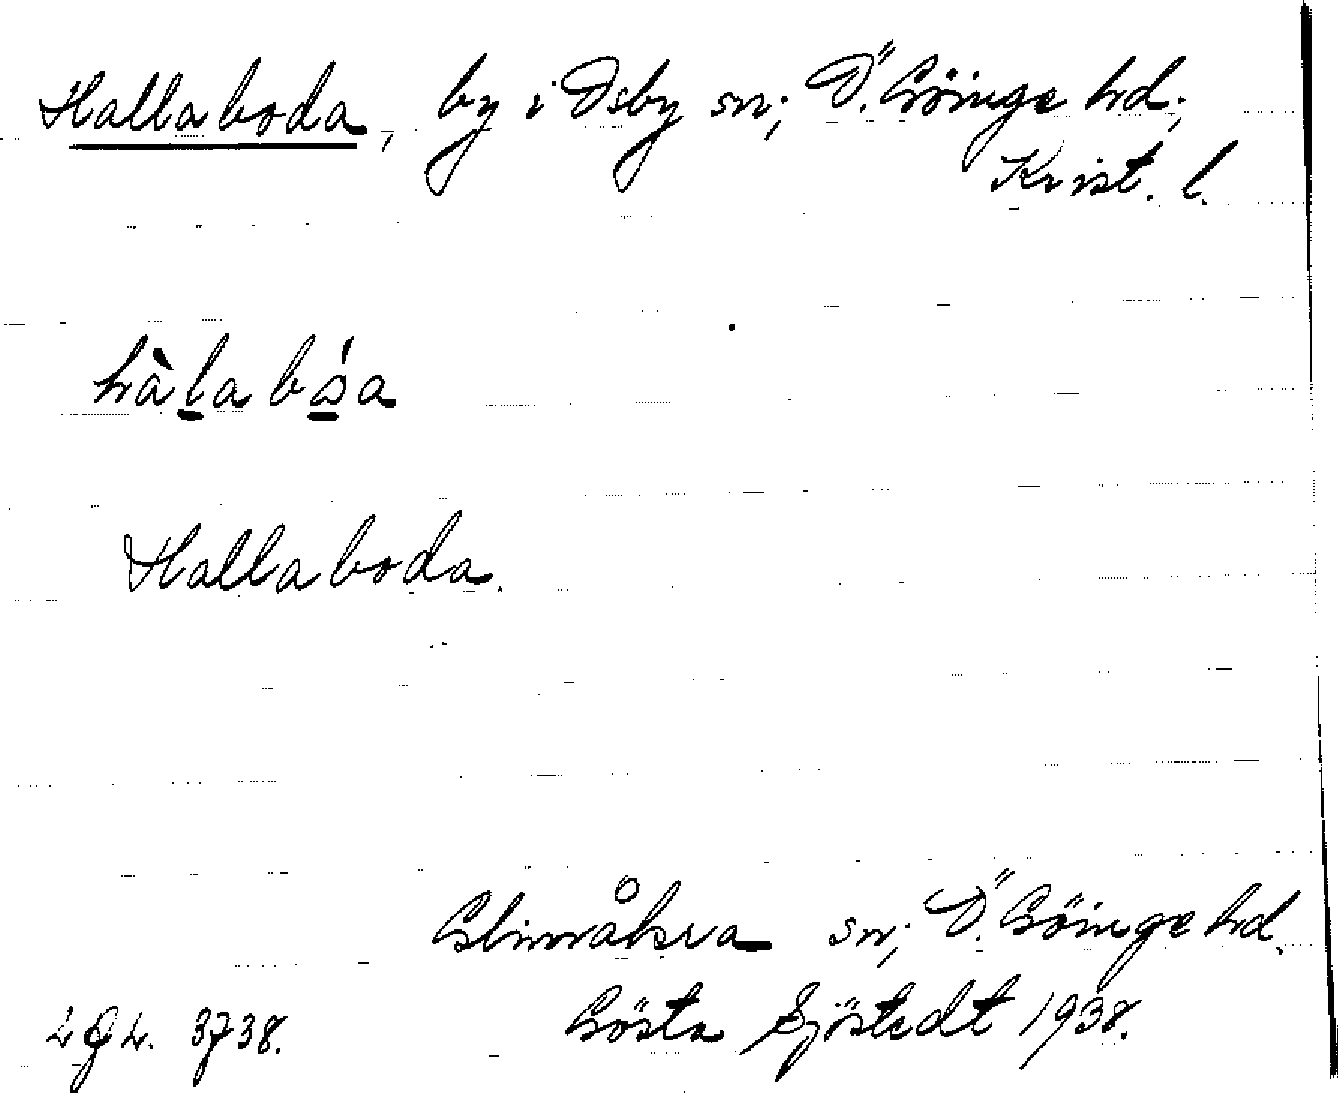 Hallaboda, by i Osby sn; Ö. Göinge hd;
Krist. l.
hàla bóa
Hallaboda.
Glimåkra sn; Ö. Göinge hd.
Gösta Sjöstedt 1938.
3738.